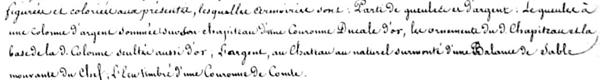 figurées et coloriées aux présentes, lesquelles armoiries sont : Parti de gueules et d'argent : Le gueules à
une colonne d'argent sommée sur son chapiteau d'une Couronne Ducale d'or, les ornements du d. Chapiteau et la
base de la d. Colonne sculté aussi d'or; L'argent, au Chateau au naturel surmonté d'une Balance de Sable
mouvante du Chef; L'Ecu timbré d'une Couronne de Comte.